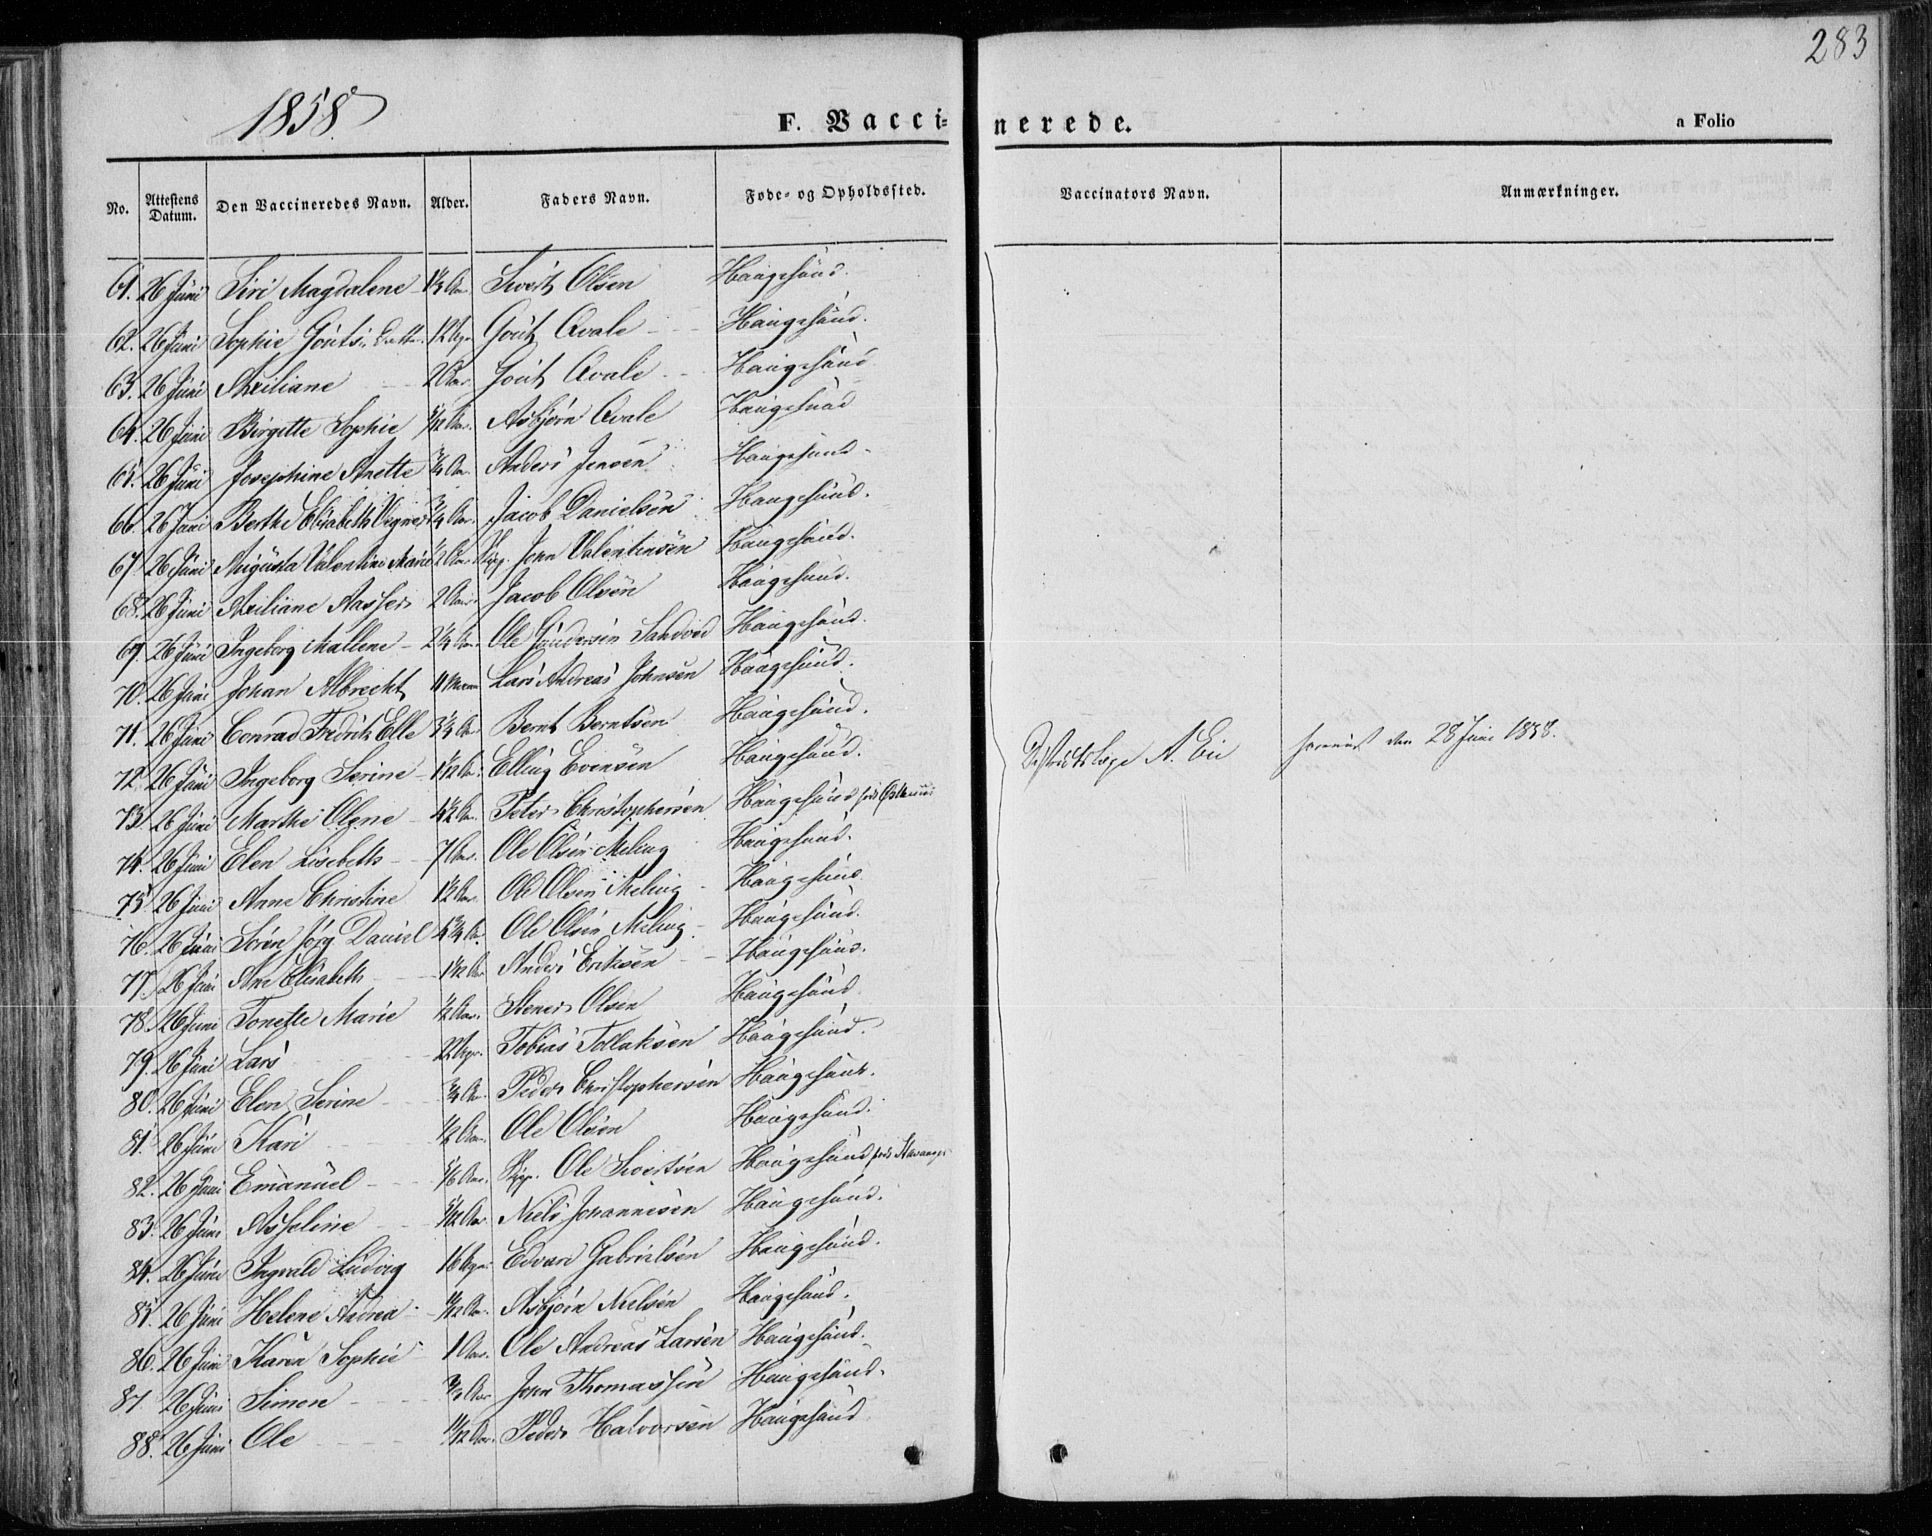 283
1858
F. Vaccinerede.
a Folio
No. Attestens Datum. Den Vaccineredes Navn. Alder. Faders Navn. Føde- og Opholdssted. Vaccinators Navn. Anmærkninger.
61. 26 Juni Siri Magdalene Sivert Olsen Haugesund.
62. 26 Juni Sophie Gouts. Datter 12 Uger Gout Qvale Haugesund.
63. 26 Juni Axiliane 2 Aar. Gout Qvale Haugesund
64. 26 Juni Birgitte Sophie Asbjørn Qvale Haugesund
65. 26 Juni Josephine Anette 3/4 Aar Anders Jensen Haugesund
66. 26 Juni Berthe Elisabeth 3/4 Aar. Jacob Danielsen Haugesund.
67 26 Juni Augusta Valentine Marie 2 Aar Skipp. John Valentinsen Haugesund.
68. 26 Juni Axiliane 2 Aar Jacob Olsen Haugesund.
69. 26 Juni Ingeborg Mallene 2 1/4 Aar Ole Gundersen Sandved Haugesund.
70. 26 Juni Johan Albrecht 11 Lars Andreas Johnsen Haugesund.
71. 26 Juni Conrad Fredrik Elle Bernt Berntsen Haugesund.
72. 26 Juni Ingeborg Serine Elling Evensen Haugesund. Distriktslæge A. Eie den 28 Juni 1858.
73. 26 Juni Marthe Olene 4 1/2 Aar. Peter Christophersen Haugesund
74. 26 Juni Elen Lisebeth 7 Aar. Ole Olsen Meling Haugesund.
75. 26 Juni Anne Christine 1 1/2 Aar. Ole Olsen Meling Haugesund
76. 26 Juni Søren Jørg Daniel 4 3/4 Aar Ole Olsen Meling Haugesund.
77. 26 Juni Ane Elisabeth Anders Eriksen Haugesund.
78. 26 Juni Tonette Marie 1/2 Aar. Stener Olsen Haugesund
79. 26 Juni Lars 22 Uger. Tobias Tollaksen Haugesund.
80. 26 Juni Elen Serine 3/4 Aar Peder Christophersen Haugesund.
81. 26 Juni Kari 1/2 Aar. Ole Olsen Haugesund.
82. 26 Juni Emanuel Skipp. Ole Sivertsen Haugesund
83. 26 Juni Asseline Niels Johannesen Haugesund.
84. 26 Juni Ingvald Ludvig 16 Uger Edvard Gabrielsen Haugesund.
85. 26 Juni Helene Andrea Asbjørn Nielsen Haugesund.
86. 26 Juni Karen Sophie 1 Aar. Ole Andreas Larsen Haugesund.
87 26 Juni Simon John Thomassen Haugesund.
88. 26 Juni Ole 11/12 Aar. Peder Halvorsen Haugesund